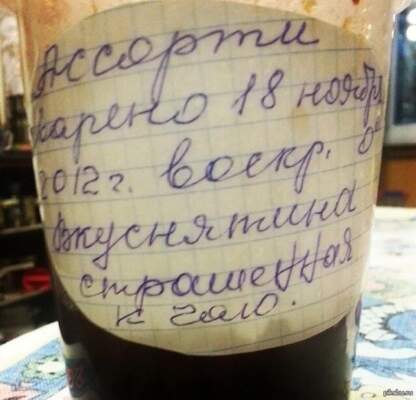 Ассорти
варено 18 ноября
2012 г. воскр.
Вкуснятина
страшенная
к чаю.
pikabu.ru